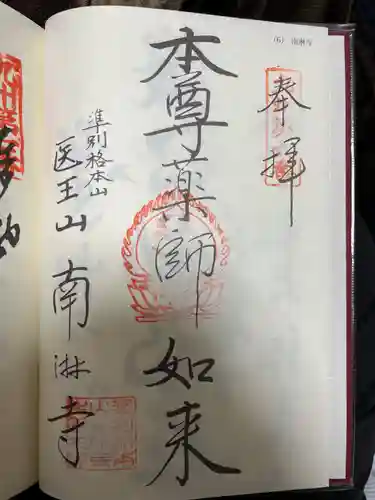 (6) 南淋寺
奉拝
本尊薬師如来
準別格本山
医王山 南淋寺